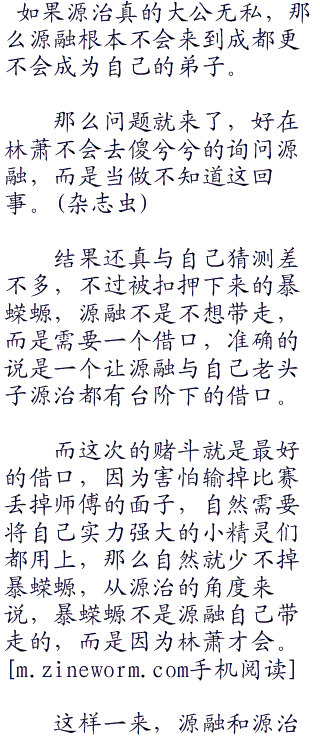 如果源治真的大公无私，那
么源融根本不会来到成都更
不会成为自己的弟子。
那么问题就来了，好在
林萧不会去傻兮兮的询问源
融，而是当做不知道这回
事。(杂志虫)
结果还真与自己猜测差
不多，不过被扣押下来的暴
蝾螈，源融不是不想带走，
而是需要一个借口，准确的
说是一个让源融与自己老头
子源治都有台阶下的借口。
而这次的赌斗就是最好
的借口，因为害怕输掉比赛
丢掉师傅的面子，自然需要
将自己实力强大的小精灵们
都用上，那么自然就少不掉
暴蝾螈，从源治的角度来
说，暴蝾螈不是源融自己带
走的，而是因为林萧才会。
[m.zineworm.com手机阅读]
这样一来，源融和源治